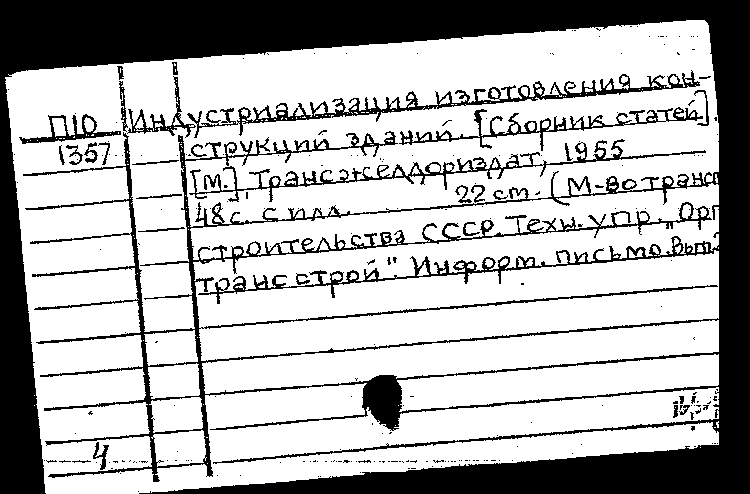 П10 Индустриализация изготовления кон-
1357 струкций зданий. [Сборник статей].
[М.], Трансжелдориздат, 1955
48 с. с илл. 22 см. (М-во трансп
строительства СССР. Техн. упр. „Орг
трансстрой". Информ. письмо. Вып.
4